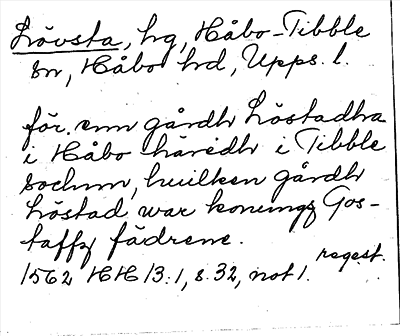 Lövsta, hg, Håbo-Tibble
sn, Håbo hd, Upps. l.
för. enn gårdh Löstadha
i Håbo häredh i Tibble
sochnn, huilken gårdh
Löstad war konungz Gos-
taffz fäderne.
regest.
1562 HH 13:1, s. 32, not 1.